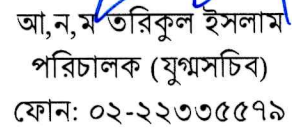 আ,ন,ম তরিকুল ইসলাম
পরিচালক (যুগ্মসচিব)
ফোন: ০২-২২৩৩৫৫৭১৯